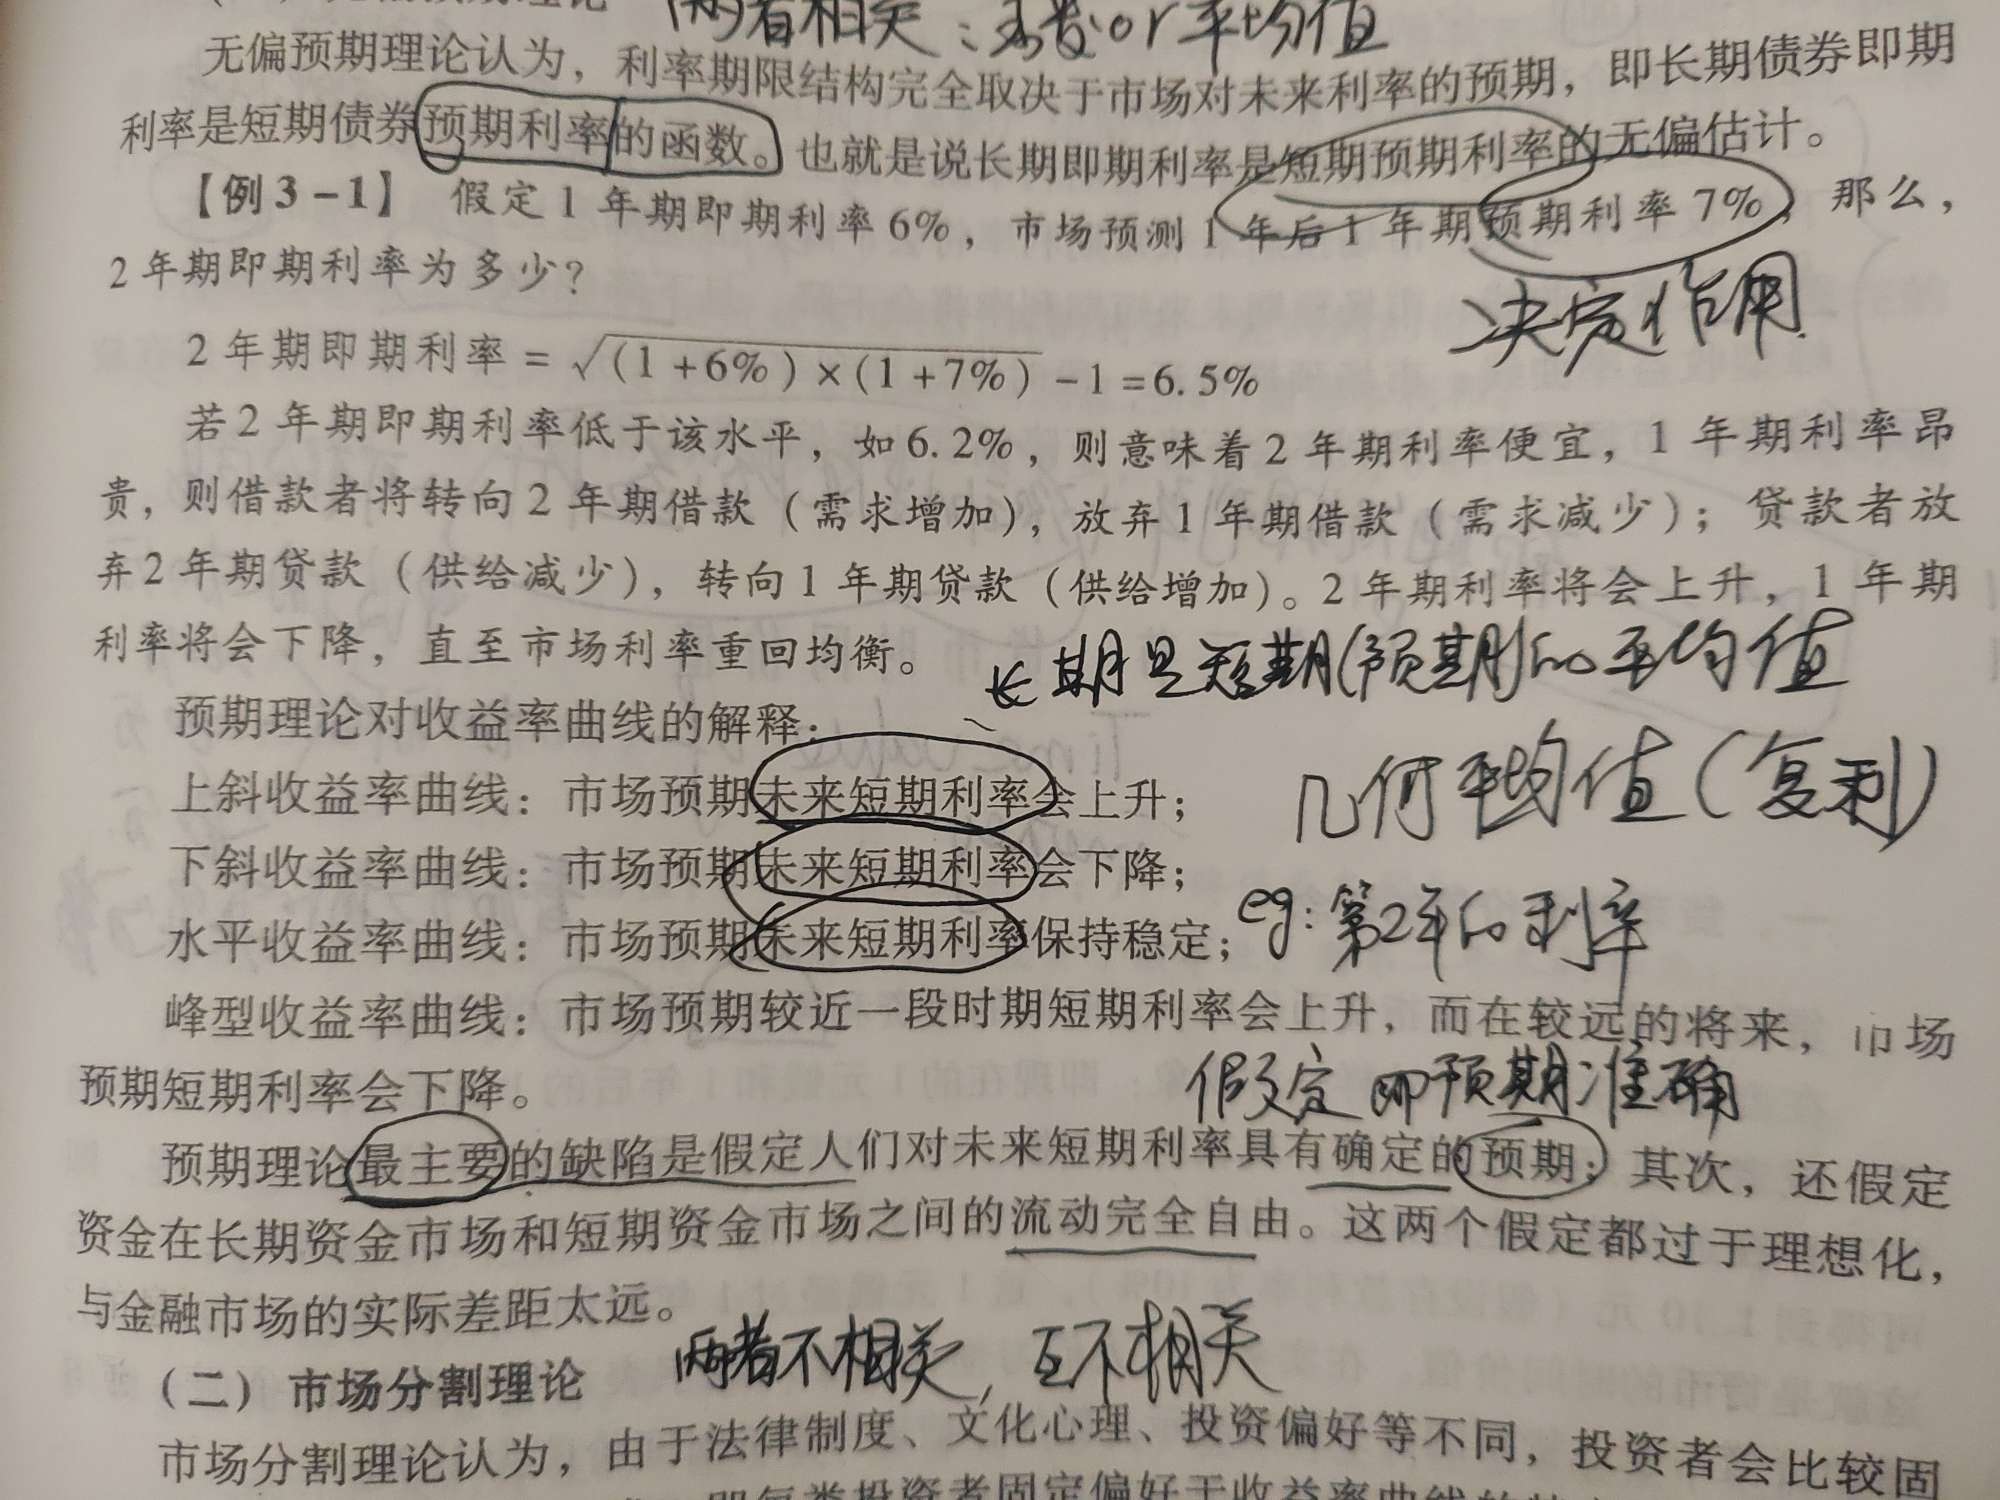 两者相关:函数or平均值
无偏预期理论认为，利率期限结构完全取决于市场对未来利率的预期，即长期债券即期
利率是短期债券预期利率的函数。也就是说长期即期利率是短期预期利率的无偏估计。
【例3-1】 假定1年期即期利率6%，市场预测1年后1年期预期利率7%，那么，
2年期即期利率为多少？
决定作用
2年期即期利率=√(1+6%)×(1+7%)-1=6.5%
若2年期即期利率低于该水平，如6.2%，则意味着2年期利率便宜，1年期利率昂
贵，则借款者将转向2年期借款（需求增加），放弃1年期借款（需求减少）；贷款者放
弃2年期贷款（供给减少），转向1年期贷款（供给增加）。2年期利率将会上升，1年期
利率将会下降，直至市场利率重回均衡。
长期是短期(预期)的平均值
预期理论对收益率曲线的解释：
几何平均值(复利)
上斜收益率曲线：市场预期未来短期利率会上升；
下斜收益率曲线：市场预期未来短期利率会下降；
eg:第2年的利率
水平收益率曲线：市场预期未来短期利率保持稳定；
峰型收益率曲线：市场预期较近一段时期短期利率会上升，而在较远的将来，市场
预期短期利率会下降。
假定即预期准确
预期理论最主要的缺陷是假定人们对未来短期利率具有确定的预期；其次，还假定
资金在长期资金市场和短期资金市场之间的流动完全自由。这两个假定都过于理想化，
与金融市场的实际差距太远。
两者不相关，互不相关
（二）市场分割理论
市场分割理论认为，由于法律制度、文化心理、投资偏好等不同，投资者会比较固